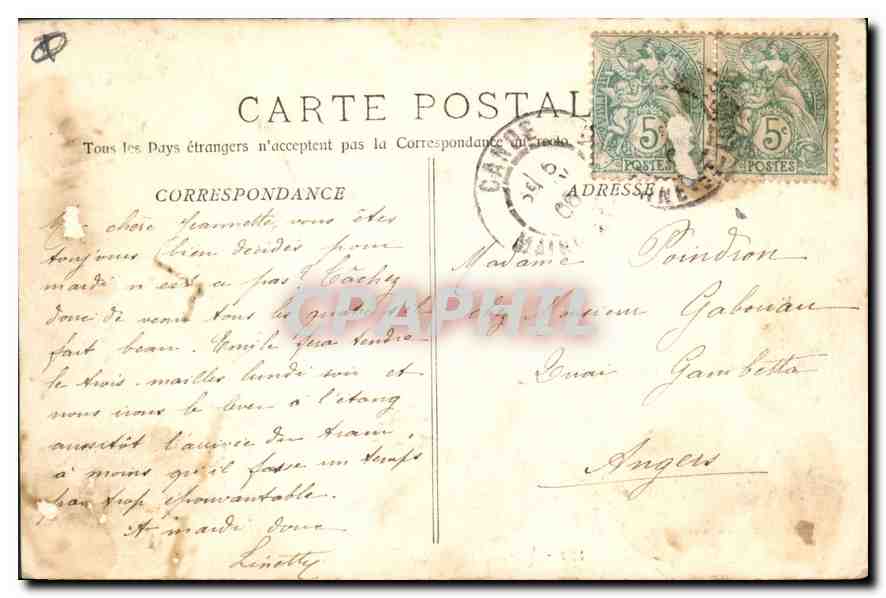 CARTE POSTAL
Tous les Pays étrangers n'acceptent pas la Correspondance au recto
CORRESPONDANCE
chère Jeannette, vous êtes
toujours bien decidés pour
mardi n'est ce pas? Tâchez
donc de venir tous les quatre s'il
fait beau. Emile fera tendre
le trois-mailles lundi soir et
nous irons le lever à l'étang
aussitôt l'arrivée du tram,
à moins qu'il fasse un temps
par trop épouvantable.
A mardi donc
Linette
5c
POSTES
5c
POSTES
CANDE
6
08
MAINE ET
ADRESSE
Madame Poindron
chez Monsieur Gabouiau
Quai Gambetta
Angers
CPAPHIL